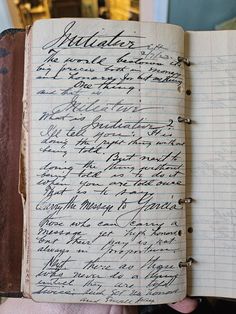 Initiative
The world bestows its
big prizes both in money
and honors for but
One thing
and that is
Initiative
What is Initiative?
I'll tell you: It is
doing the right thing without
being told
But next to
doing the thing without
being told is to do it
when you are told once
That is to say
Carry the Message to Garcia
those who can carry a
message get high honors
but their pay is not
always in proportion
Next there are those
who never do a thing
until they are told
twice